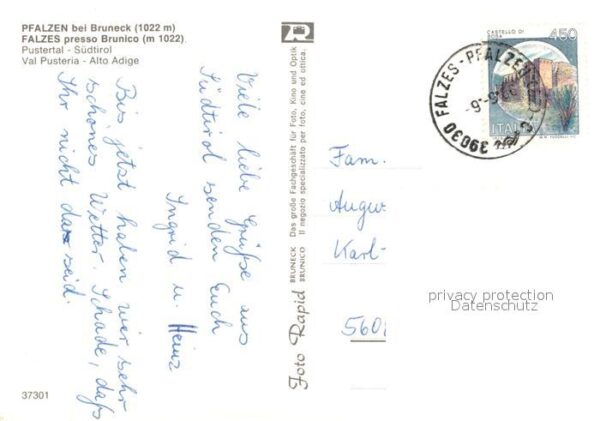 PFALZEN bei Bruneck (1022 m)
FALZES presso Brunico (m 1022)
Pustertal - Südtirol
Val Pusteria - Alto Adige
Viele liebe Grüße aus
Südtirol senden Euch
Ingrid u. Heinz
Bis jetzt haben wir sehr
schönes Wetter. Schade, daß
Ihr nicht da seid.
37301
Foto Rapid
BRUNECK
BRUNICO
Das große Fachgeschäft für Foto, Kino und Optik
Il negozio specializzato per foto, cine ed ottica.
R
CASTELLO DI
450
ITALIA
39030 FALZES-PFALZEN
Fam.
Augus
Karl-
560
privacy protection
Datenschutz